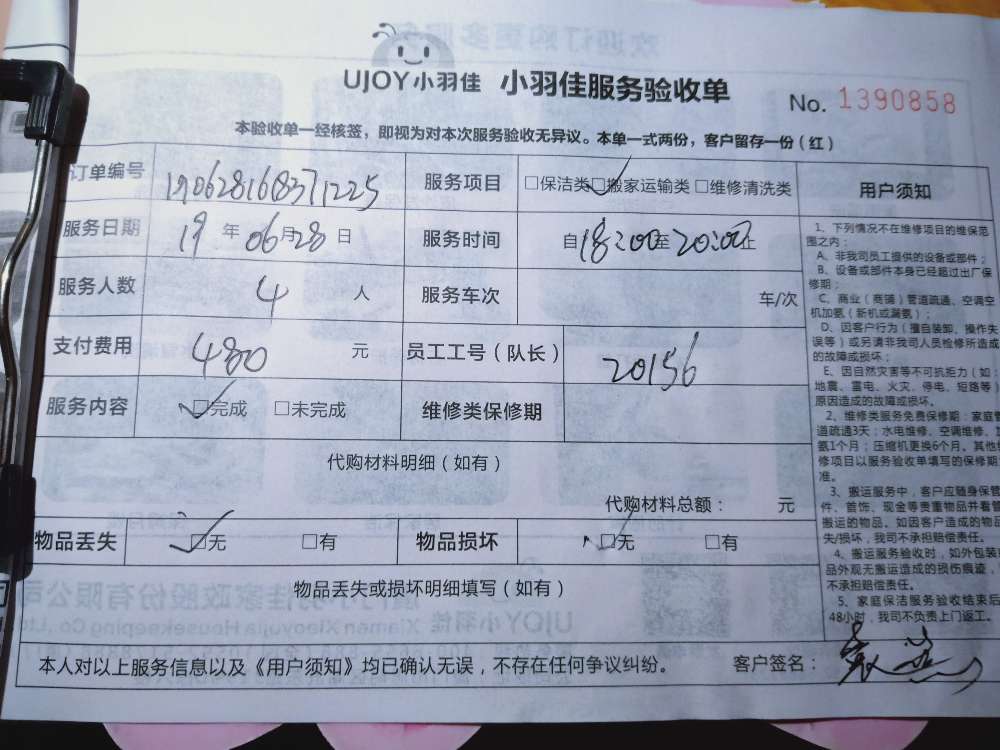 UJOY小羽佳 小羽佳服务验收单 No. 1390858
本验收单一经核签，即视为对本次服务验收无异议。本单一式两份，客户留存一份（红）
订单编号 190628168371225 服务项目 □保洁类 ☑搬家运输类 □维修清洗类
服务日期 19 年 06 月 28 日 服务时间 自18:00至20:00止
服务人数 4 人 服务车次 车/次
支付费用 480 元 员工工号（队长） 20156
服务内容 ☑完成 □未完成 维修类保修期
代购材料明细（如有）
代购材料总额： 元
物品丢失 ☑无 □有 物品损坏 ☑无 □有
物品丢失或损坏明细填写（如有）
本人对以上服务信息以及《用户须知》均已确认无误，不存在任何争议纠纷。 客户签名：
用户须知
1、下列情况不在维修项目的维保范
围之内：
A、非我司员工提供的设备或部件；
B、设备或部件本身已经超过出厂保
修期；
C、商业（商铺）管道疏通、空调空
机加氨（新机或漏氨）；
D、因客户行为（擅自装卸、操作失
误等）或另请非我司人员检修所造成
的故障或损坏；
E、因自然灾害等不可抗拒力（如：
地震、雷电、火灾、停电、短路等）
原因造成的故障或损坏。
2、维修类服务免费保修期：家庭管
道疏通3天；水电维修、空调维修、加
氨1个月；压缩机更换6个月。其他
修项目以服务验收单填写的保修期
准。
3、搬运服务中，客户应随身保管
件、首饰、现金等贵重物品并看管
搬运的物品。如因客户造成的物品
失/损坏，我司不承担赔偿责任。
4、搬运服务验收时，如外包装
品外观无搬运造成的损伤痕迹，
不承担赔偿责任。
5、家庭保洁服务验收结束后
48小时，我司不负责上门返工。